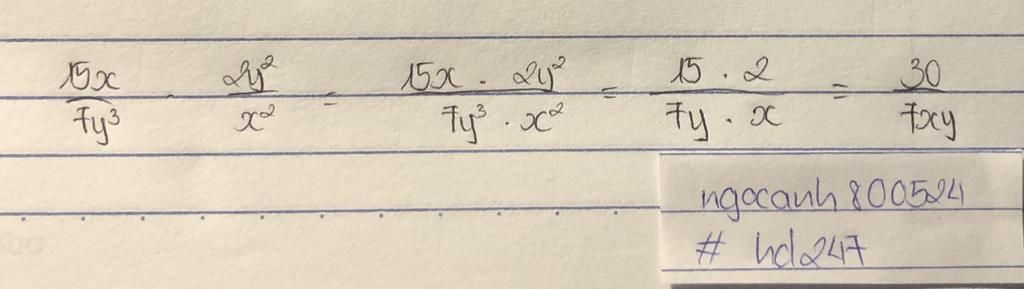 15x/7y³ . 2y²/x² = 15x . 2y²/7y³ . x² = 15 . 2/7y . x = 30/7xy
ngocanh800524
# hd247